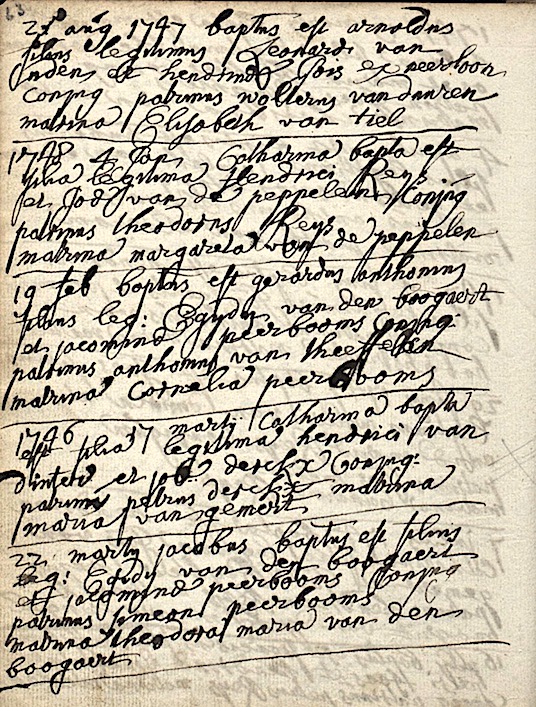 63
23 aug 1747 baptus est arnoldus
filius legitimus Leonardi van
Jnden et hendrina Jois ex neerloon
Conjug patrinus wollerus van dunren
matrina Elisabeth van tiel
1748 4 Jan Catharina bapta est
filia legitima Hendrici Reys
et Jod van de peppelen Conjug
patrinus theodorus Reys
matrina margareta van de peppelen
19 feb baptus est gerardus anthonius
filius leg: Egydij van den boogaert
et jacomina peerbooms Conjug:
patrinus anthonius van theffelen
matrina Cornelia peerbooms
1746 17 martij Catharina bapta
est filia legitima hendrici van
dinter et derckx Conjug:
patrinus petrus derckx matrina
maria van gemert
22 martij jacobus baptus est filius
leg: Egydij van den boogaert
et jacomina peerbooms Conjug
patrinus simeon peerbooms
matrina theodora maria van den
boogaert